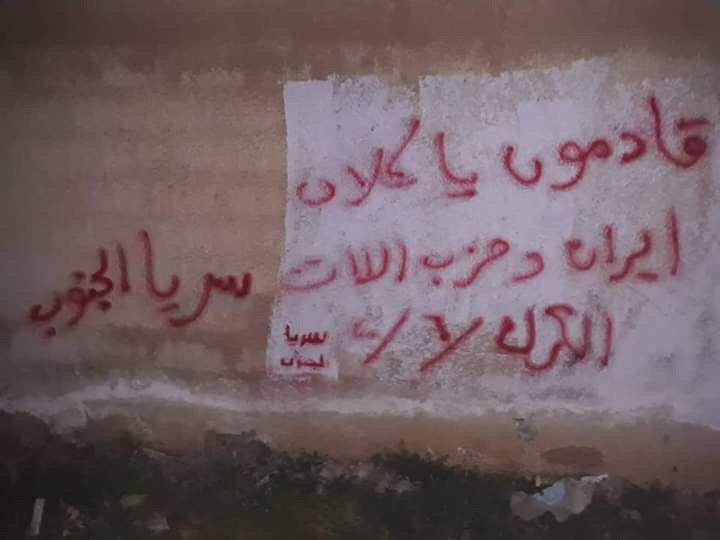 قادمون يا كلاب
ايران وحزب اللات
الكرك ٧/٦/
سريا الجنوب
سريا
لجنوب